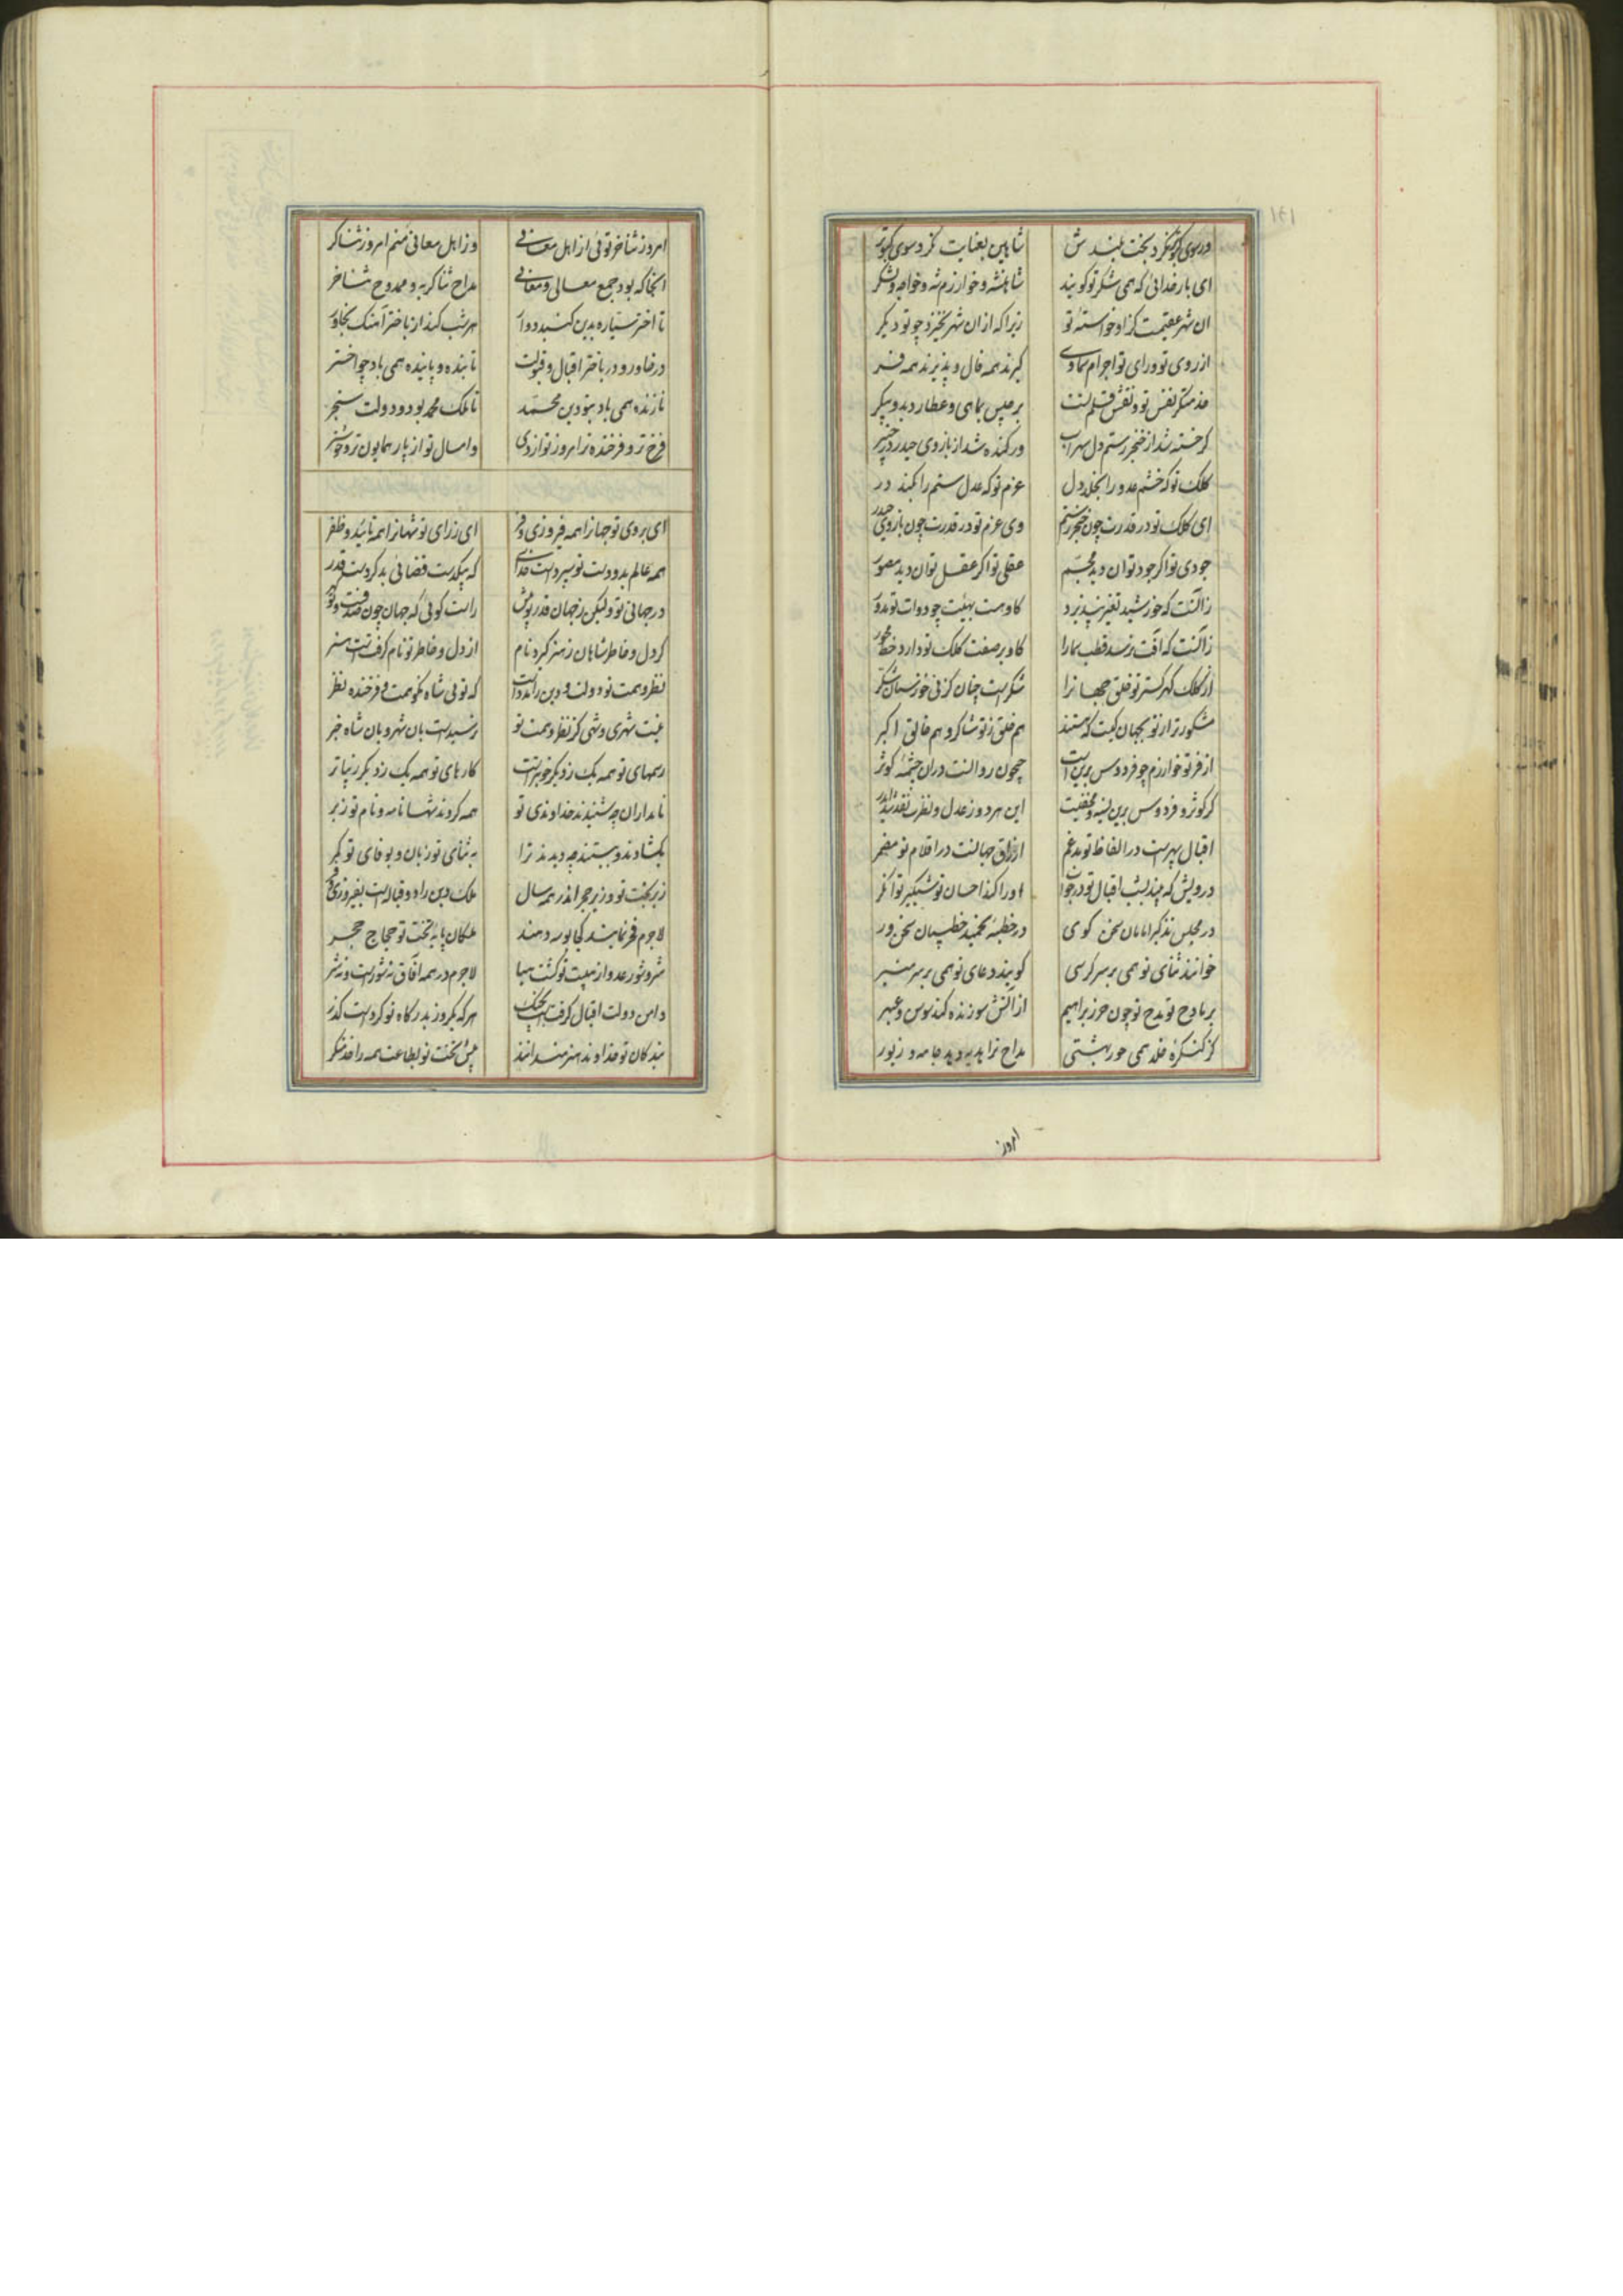 ۱۶۱
ورسوی کبوتر نگرد بخت بلندش شاهین بعنایت نگرد سوی کبوتر
ای بار خدائی که همی شکر تو کویند شاهنشه و خوارزم شه و خواجه و لشکر
ان شهر عقیمست کزاو خواسته تو زیرا که ازان شهر نخیزد چو تو دیکر
از روی تو و رای تو اجرام سماوی کیرند همه فال و پذیرند همه فر
خدمتکر نفس تو و نقش قلم تست برجیس بماهی و عطارد بدو پیکر
کر خسته شد از خنجر رستم دل سهراب ور کنده شد از بازوی حیدر در خیبر
کلک تو که خشم عدو را بخلد دل عزم تو که عدل ستم را بکند در
ای کلک تو در قدرت چون خنجر رستم وی عزم تو در قدرت چون بازوی حیدر
جودی تو اکر جود توان دید مجسم عقلی تو اکر عقل توان دید مصور
زانست که خورشید تغیر نپذیرد کاو هست بهیئت چو دوات تو مدور
زانست که آفت نرسد قطب سما را کاو بر صفت کلک تو دارد خط محور
از کلک کهر کستر تو خلق جهانرا شکرست چنان کز نی خوزستان شکر
مشکورتر از تو بجهان کیست که هستند هم خلق ز تو شاکر و هم خالق اکبر
از فر تو خوارزم چو فردوس برین است جیحون روانست دران چشمه کوثر
کر کوثر و فردوس برین نسیه و مخفیست این هر دو ز عدل و نظرت نقد شد ایدر
اقبال سپهرست در الفاظ تو مدغم ارزاق جهانست در اقلام تو مضمر
درویش که چند بشب اقبال تو در خواب او را کند احسان تو شبکیر توانکر
در مجلس تذکیر امامان سخن کوی در خطبه تحمید خطیبان سخن ور
خوانند ثنای تو همی بر سر کرسی کویند دعای تو همی بر سر منبر
بر مادح تو مدح تو چون حرز براهیم از آتش سوزنده کند سوسن و عبهر
کز کنکره خلد همی حور بهشتی مداح ترا هدیه دهد جامه و زیور
امروز
امروز ثنا خر توئی از اهل معانی وز اهل معانی منم امروز ثناکر
انجا که بود جمع معالی و معانی مداح ثناکر به و ممدوح ثنا خر
تا اختر سیاره بدین کنبد دوار هر شب کند از باختر آهنک بخاور
در خاور و در باختر اقبال و قبولت تابنده و پاینده همی باد چو اختر
نازنده همی باد بتو دین محمد تا ملک محمد بود و دولت سنجر
فرخ تر و فرخنده تر امروز تو از دی وامسال تو از پار همایون تر و خوشتر
ای بروی تو جهانرا همه فیروزی و فر ای ز رای تو شهانرا همه تایید و ظفر
همه عالم بدو دست تو سپردست خدای که بیکدست قضائی بدکر دست قدر
در جهانی تو و لیکن ز جهان قدر تو بیش راست کوئی که جهان چون صدفست و تو کهر
کر دل و خاطر شاهان ز هنر کیرد نام از دل و خاطر تو نام کرفتست هنر
نظر و همت تو دولت و دین را مددست که توئی شاه نکو همت و فرخنده نظر
نیست شهری و شهی کز نظر و همت تو نرسیدست بان شهر و بان شاه خبر
رسمهای تو همه یک ز دیکر خوبترست کارهای تو همه یک ز دیکر زیباتر
نامداران چو شنیدند خداوندی تو همه کردند شها نامه و نام تو ز بر
بکشادند و ببستند چو دیدند ترا به ثنای تو زبان و بوفای تو کمر
زیر تخت تو وزیر حجر اندر همه سال ملک و دین راد و قبالست بفیروزی و فر
لاجرم فخر نمایند کجا بوسه دهند ملکان پایه تخت تو حجاج حجر
شر و شور عدو از هیبت تو کشت هبا لاجرم در همه آفاق نه شورست و نه شر
دامن دولت اقبال کرفتست بچنک هر که یکروز بدرکاه تو کردست کذر
بندکان تو خداوند هنرمندانند پیش تخت تو بطاعت همه را خدمتکر